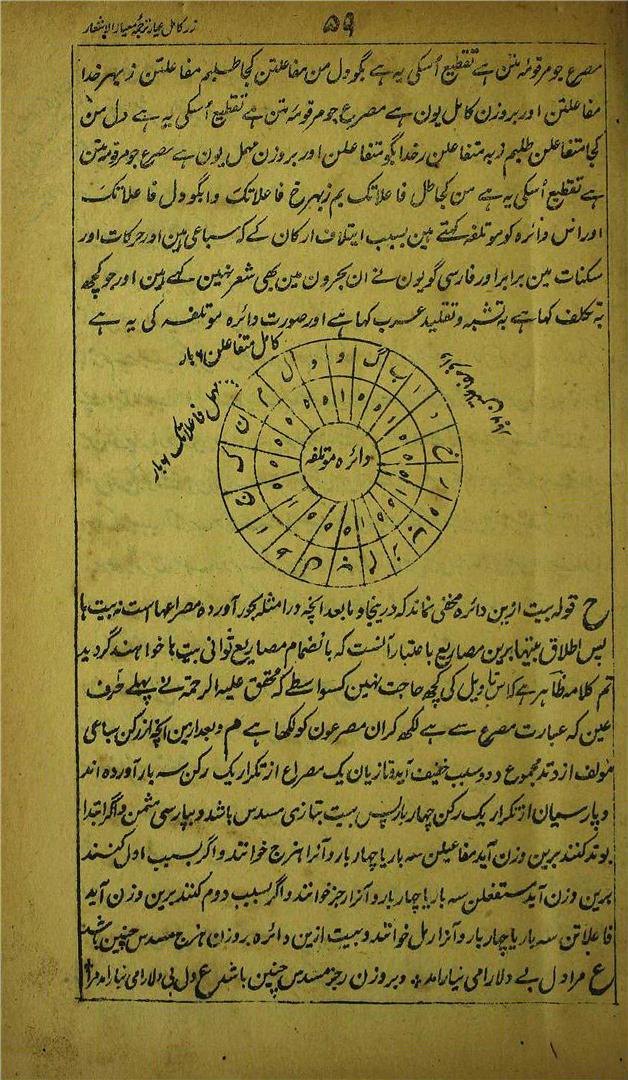 ۵۹
زر کامل عیار ترجمۂ معیار الاشعار
مصرع جو مرقومۂ متن ہے تقطیع اُسکی یہ ہے بگو دل من مفاعلتن کجا طلبم مفاعلتن ز بہر خدا
مفاعلتن اور بر وزن کامل یون ہے مصرع جو مرقومۂ متن ہے تقطیع اُسکی یہ ہے دل من
کجا متفاعلن طلبم ز بہ متفاعلن ر خدا بگو متفاعلن اور بر وزن مہمل یون ہے مصرع جو مرقومۂ متن
ہے تقطیع اُسکی یہ ہے من کجا طل فاعلاتک بم ز بہر خ فاعلاتک دا بگو دل فاعلاتک
اور اس دائرہ کو موتلفہ کہتے ہین بسبب ایتلاف ارکان کے کہ سباعی ہین اور حرکات اور
سکنات مین برابر اور فارسی گویون نے ان بحرون مین بھی شعر نہین کہے ہین اور جو کچھ
بہ تکلف کہا ہے بہ تشبہ و تقلید عرب کہا ہے اور صورت دائرہ موتلفہ کی یہ ہے
کامل متفاعلن ۶ بار
مہمل فاعلاتک ۶ بار
دائرہ موتلفہ
ح قولہ بیت ازین دائرہ مخفی نماند کہ درینجا و بابعد انچہ در امثلہ بحور آوردہ مصراعہاست نہ بیت ہا
پس اطلاق بیتہا برین مصاریع باعتبار آنست کہ بانضمام مصاریع ثوانی بیت ہا خواہند گردید
تم کلامہ ظاہر ہے کہ اس تاویل کی کچھ حاجت نہین کسواسطے کہ محقق علیہ الرحمۃ نے پہلے حرف
عین کہ عبارت مصرع سے ہے لکھ کر ان مصرعون کو لکھا ہے م و بعد ازین انچہ از رکن سباعی
مولف از وتد مجموع و دو سبب خفیف آید و تازیان یک مصراع از تکرار یک رکن سہ بار آوردہ اند
و پارسیان از تکرار یک رکن چہار بار پس بیت بتازی مسدس باشد و بپارسی مثمن و اگر ابتدا
بوتد کنند برین وزن آید مفاعیلن سہ بار یا چہار بار و آنرا ہزج خوانند و اگر بسبب اول کنند
برین وزن آید مستفعلن سہ بار یا چہار بار و آنرا رجز خوانند و اگر بسبب دوم کنند برین وزن آید
فاعلاتن سہ بار یا چہار بار و آنرا رمل خوانند و بیت ازین دائرہ بر وزن ہزج مسدس چنین باشد
ع مرا دل بے دلارامی نیارامد ٭ و بر وزن رجز مسدس چنین باشد ع دل بی دلارامی نیارامد مرا